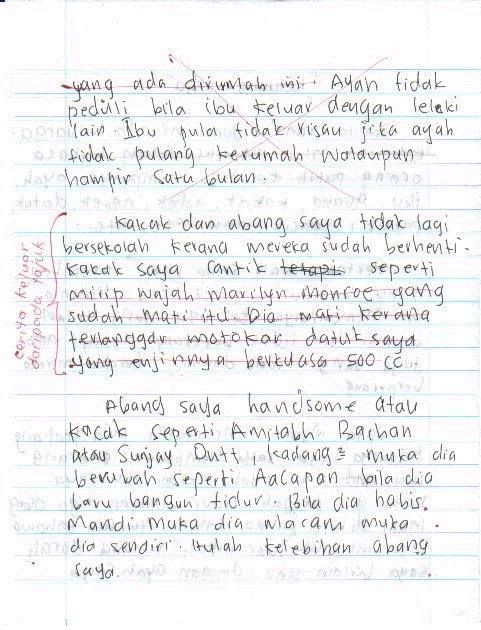 yang ada dirumah ini. Ayah tidak
peduli bila ibu keluar dengan lelaki
lain Ibu pula tidak risau jika ayah
tidak pulang kerumah walaupun
hampir satu bulan.
Kakak dan abang saya tidak lagi
bersekolah kerana mereka sudah berhenti.
Kakak saya cantik tetapi seperti
mirip wajah Marilyn Monroe yang
sudah mati itu. Dia mati kerana
terlanggar motokar datuk saya
yang enjinnya berkuasa 500 cc.
cerita keluar
daripada tajuk
Abang saya handsome atau
kacak seperti Amitabh Bachan
atau Sunjay Dutt kadang² muka dia
berubah seperti Aacapan bila dia
baru bangun tidur. Bila dia habis
mandi muka dia macam muka
dia sendiri. Itulah kelebihan abang
saya.